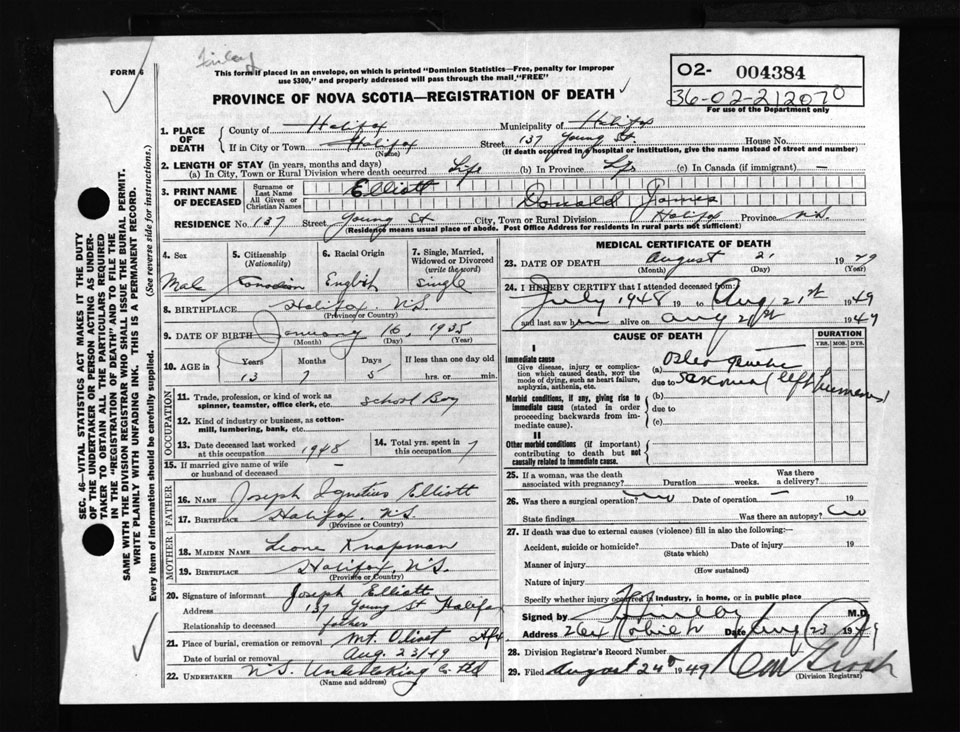 Finlay
FORM 6
This form if placed in an envelope, on which is printed "Dominion Statistics—Free, penalty for improper
use $300," and properly addressed will pass through the mail, "FREE"
PROVINCE OF NOVA SCOTIA—REGISTRATION OF DEATH
02- 004384
36-02-212070
For use of the Department only
1. PLACE OF DEATH
County of Halifax Municipality of Halifax
If in City or Town Halifax Street 137 Young St. House No.
(Name) (If death occurred in a hospital or institution, give the name instead of street and number)
2. LENGTH OF STAY (in years, months and days)
(a) In City, Town or Rural Division where death occurred Life (b) In Province Life (c) In Canada (if immigrant) —
3. PRINT NAME OF DECEASED
Surname or Last Name Elliott
All Given or Christian Names Donald James
RESIDENCE No. 137 Street Young St City, Town or Rural Division Halifax Province N.S.
(Residence means usual place of abode. Post Office Address for residents in rural parts not sufficient)
4. Sex
Male
5. Citizenship
(Nationality)
Canadian
6. Racial Origin
English
7. Single, Married,
Widowed or Divorced
(write the word)
Single
8. BIRTHPLACE Halifax, N.S.
(Province or Country)
9. DATE OF BIRTH January 16, 1935
(Month) (Day) (Year)
10. AGE in
Years Months Days If less than one day old
13 7 5 hrs. or min.
OCCUPATION
11. Trade, profession, or kind of work as
spinner, teamster, office clerk, etc. School Boy
12. Kind of industry or business, as cotton-
mill, lumbering, bank, etc.
13. Date deceased last worked
at this occupation 1948
14. Total yrs. spent in
this occupation 7
15. If married give name of wife
or husband of deceased —
FATHER
16. NAME Joseph Ignatius Elliott
17. BIRTHPLACE Halifax N.S.
(Province or Country)
MOTHER
18. MAIDEN NAME Leone Knapman
19. BIRTHPLACE Halifax, N.S.
(Province or Country)
20. Signature of informant Joseph Elliott
Address 137 Young St Halifax
Relationship to deceased father
21. Place of burial, cremation or removal Mt. Olivet Hfx
Date of burial or removal Aug. 23/49
22. UNDERTAKER N.S. Undertaking Co. Ltd
(Name and address)
MEDICAL CERTIFICATE OF DEATH
23. DATE OF DEATH August 21 1949
(Month) (Day) (Year)
24. I HEREBY CERTIFY that I attended deceased from:
July 1948 19 to Aug 21st 1949
and last saw him alive on Aug 21st 1949
CAUSE OF DEATH
DURATION
YRS. MOS. DYS.
I
Immediate cause
Give disease, injury or complica-
tion which caused death, NOT the
mode of dying, such as heart failure,
asphyxia, asthenia, etc.
(a) Osteogenetic
due to Sarcoma (left humerus)
Morbid conditions, if any, giving rise to
immediate cause (stated in order
proceeding backwards from im-
mediate cause).
(b)
due to
(c)
II
Other morbid conditions (if important)
contributing to death but not
causally related to immediate cause.
25. If a woman, was the death
associated with pregnancy? Duration weeks. Was there a delivery?
26. Was there a surgical operation? no Date of operation — 19
State findings Was there an autopsy? no
27. If death was due to external causes (violence) fill in also the following:—
Accident, suicide or homicide? Date of injury 19
(State which)
Manner of injury
(How sustained)
Nature of injury
Specify whether injury occurred in industry, in home, or in public place
Signed by M.D.
Address Date Aug 23 1949
28. Division Registrar's Record Number
29. Filed August 24th 1949
(Division Registrar)
SEC. 46—VITAL STATISTICS ACT MAKES IT THE DUTY
OF THE UNDERTAKER OR PERSON ACTING AS UNDER-
TAKER TO OBTAIN ALL THE PARTICULARS REQUIRED
IN THE "REGISTRATION OF DEATH" AND TO FILE THE
SAME WITH THE DIVISION REGISTRAR WHO SHALL ISSUE THE BURIAL PERMIT.
WRITE PLAINLY WITH UNFADING INK. THIS IS A PERMANENT RECORD.
Every item of information should be carefully supplied. (See reverse side for instructions.)